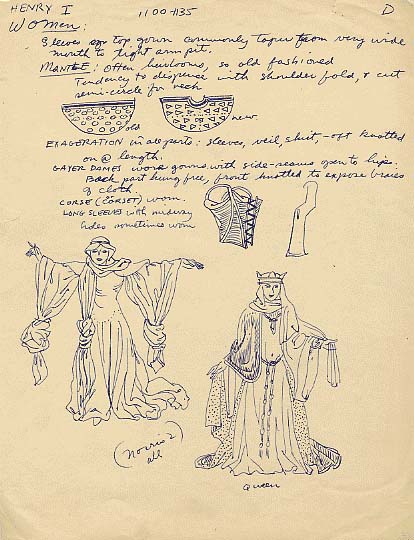 HENRY I
1100-1135
D
WOMEN:
Sleeves top gown commonly taper from very wide
mouth to tight armpit.
MANTLE: Often heirlooms, so old fashioned
Tendency to dispense with shoulder fold, & cut
semi-circle for neck
old
new
EXAGERATION in all parts: sleeves, veil, skirt, - oft knotted
on @ length.
GAYER DAMES wore gowns with side-seams open to hips.
Back part hung free, front knotted to expose
of cloth.
CORSE (CORSET) worn.
LONG SLEEVES with midway
holes sometimes worn
(Norris 2)
all
Queen